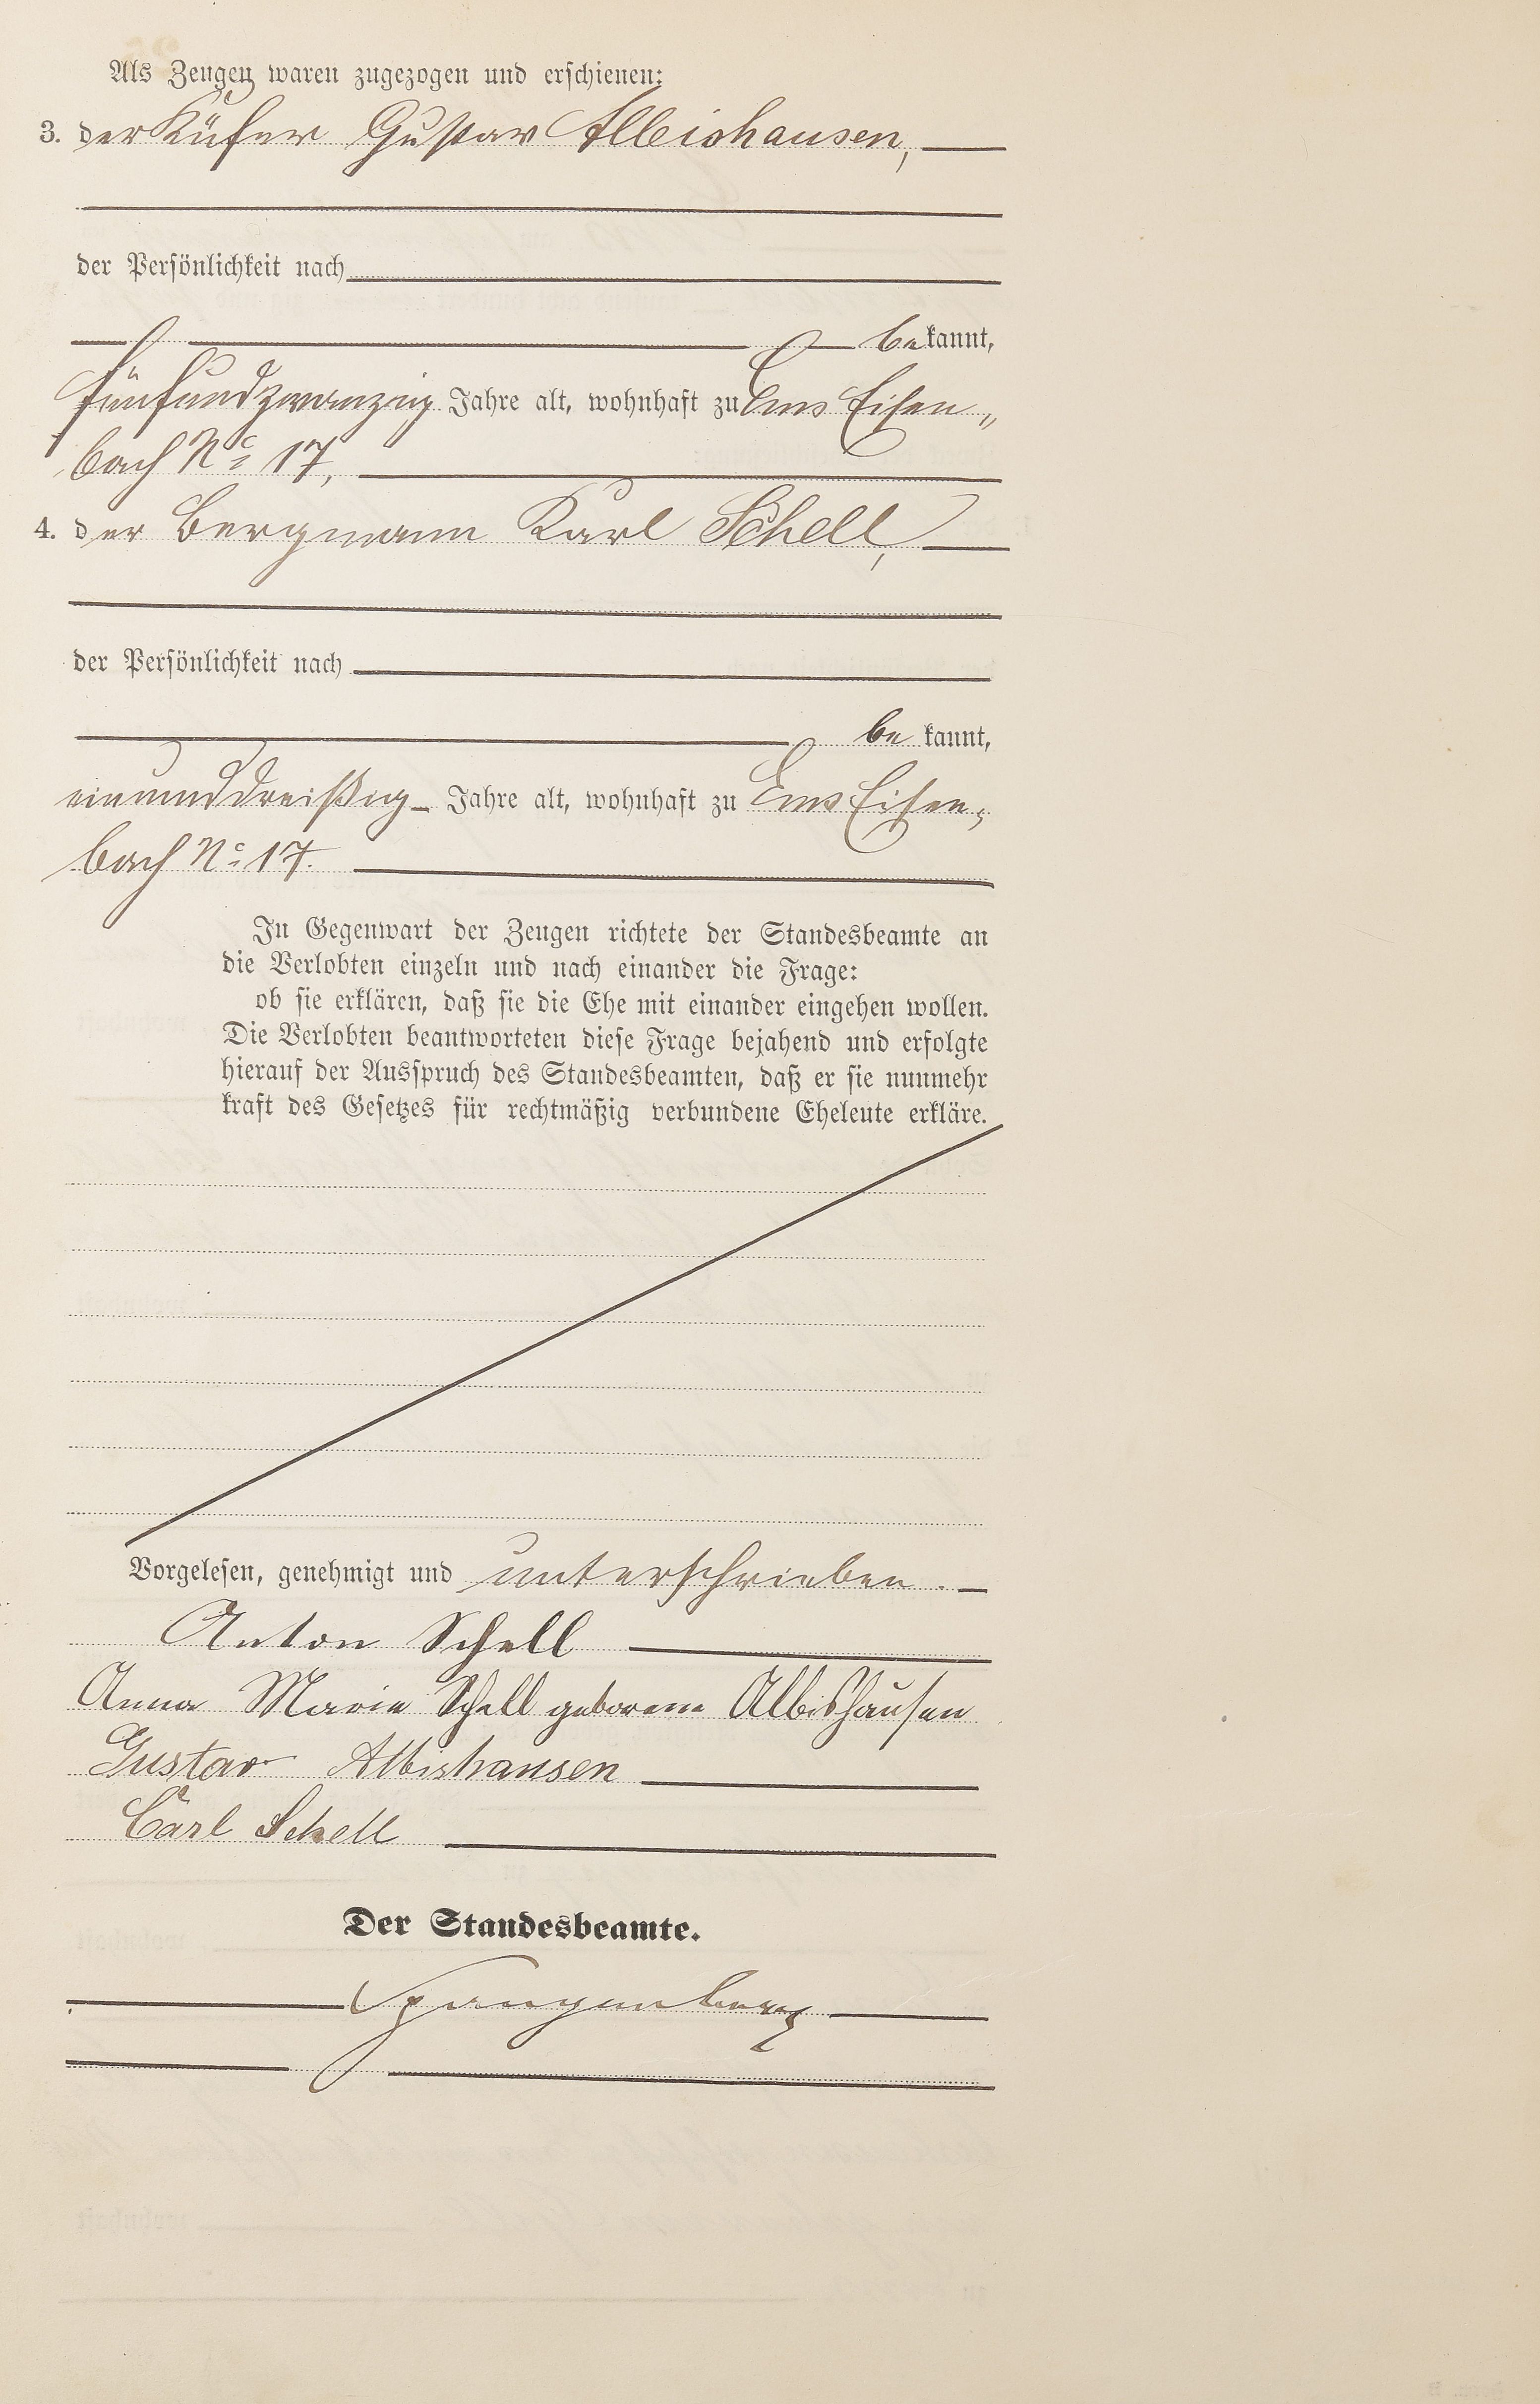 Als Zeugen waren zugezogen und erschienen:
3. der Küfer Gustav Albishausen,
der Persönlichkeit nach
bekannt,
fünfundzwanzig Jahre alt, wohnhaft zu Ems Eisen„
bach No 17,
4. der Bergmann Karl Schell,
der Persönlichkeit nach
be kannt,
einunddreißig Jahre alt, wohnhaft zu Ems Eisen„
bach No 17.
In Gegenwart der Zeugen richtete der Standesbeamte an
die Verlobten einzeln und nach einander die Frage:
ob sie erklären, daß sie die Ehe mit einander eingehen wollen.
Die Verlobten beantworteten diese Frage bejahend und erfolgte
hierauf der Ausspruch des Standesbeamten, daß er sie nunmehr
kraft des Gesetzes für rechtmäßig verbundene Eheleute erkläre.
Vorgelesen, genehmigt und unterschrieben.
Anton Schell
Anna Marie Schell geborene Albishausen
Gustav Albishausen
Carl Schell
Der Standesbeamte.
Spangenberg